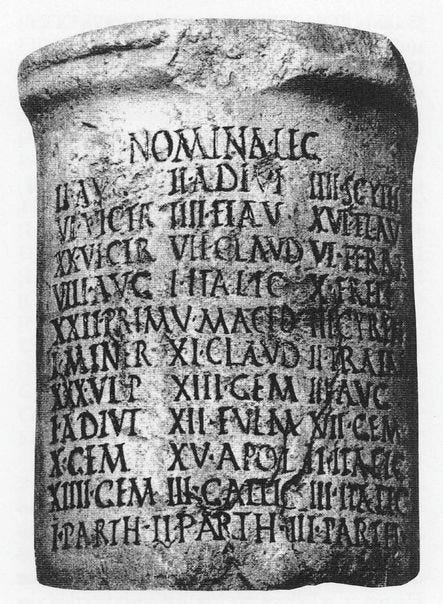 NOMINA·LEG
II·AVG II·ADIVT IIII·SCYTH
VI·VICTR IIII·FLAV XVI·FLAV
XX·VICTR VII·CLAVD VI·FERR
VIII·AVG I·ITALIC X·FRET
XXII·PRIM V·MACED III·CYREN
I·MINER XI·CLAVD II·TRAIA
XXX·VLP XIII·GEM III·AVG
I·ADIVT XII·FVLM VII·GEM
X·GEM XV·APOL II·ITALIC
XIIII·GEM III·GALLIC III·ITALIC
I·PARTH·II·PARTH·III·PARTH